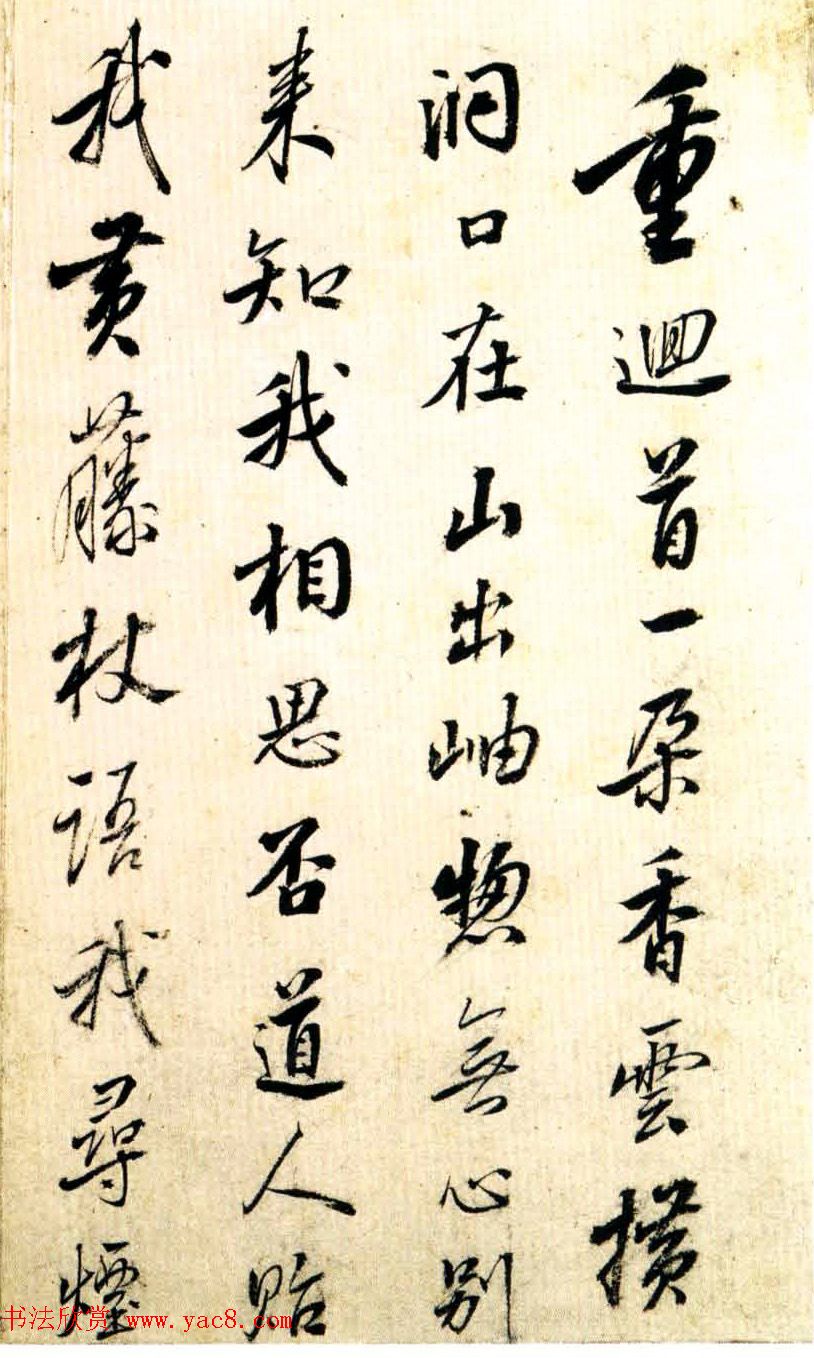 重迴首一朵香雲横
洞口在山出岫惣無心别
来知我相思否道人貽
我黄藤杖語我尋煙
书法欣赏www.yac8.com